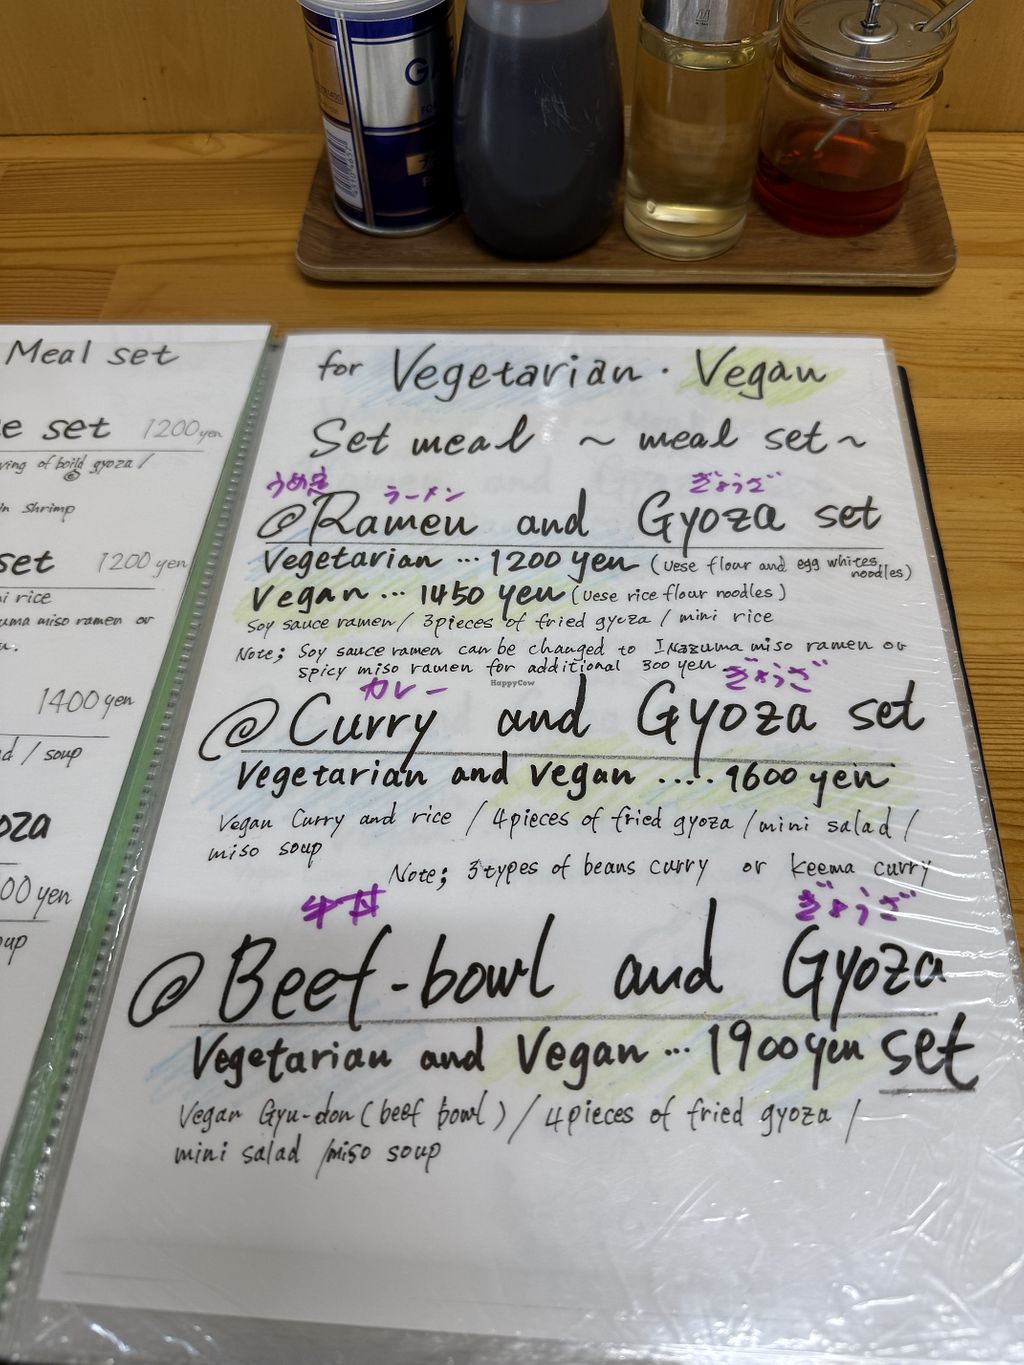 Meal set
e set 1200yen
ving of boild gyoza /
in shrimp
set 1200yen
ni rice
uma miso ramen or
1400yen
d / soup
oza
00yen
oup
for Vegetarian · Vegan
Set meal ～ meal set～
ラーメン ぎょうざ
@Ramen and Gyoza set
Vegetarian ... 1200 yen (uese flour and egg whites noodles)
Vegan ... 1450 yen (uese rice flour noodles)
Soy sauce ramen / 3pieces of fried gyoza / mini rice
Note; Soy sauce ramen can be changed to Inazuma miso ramen or
spicy miso ramen for additional 300 yen
カレー ぎょうざ
HappyCow
@Curry and Gyoza set
Vegetarian and vegan .... 1600 yen
Vegan Curry and rice / 4pieces of fried gyoza / mini salad /
miso soup
Note; 3types of beans curry or keema curry
牛丼 ぎょうざ
@Beef-bowl and Gyoza
Vegetarian and Vegan ... 1900yen set
Vegan Gyu-don (beef bowl) / 4pieces of fried gyoza /
mini salad /miso soup